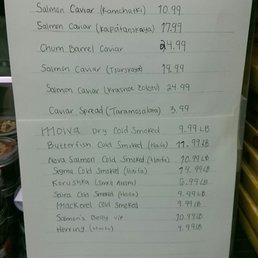 Salmon Caviar (Kamchatki) 10.99
Salmon Caviar (Kapitanskaya) 17.99
Chum Barrel Caviar 24.99
Salmon Caviar 19.99
Salmon Caviar 24.99
Caviar Spread (Taramosalata) 3.99
Moiva Dry Cold Smoked 9.99 LB
Butterfish Cold Smoked 11.99 LB
Nova Salmon Cold Smoked 10.99 LB
Segma Cold Smoked
Korushka 5.99 LB
Saira Cold Smoked 9.99 LB
Mackerel Cold Smoked 9.99 LB
Salmon's Belly 10.99 LB
Herring 4.99 LB